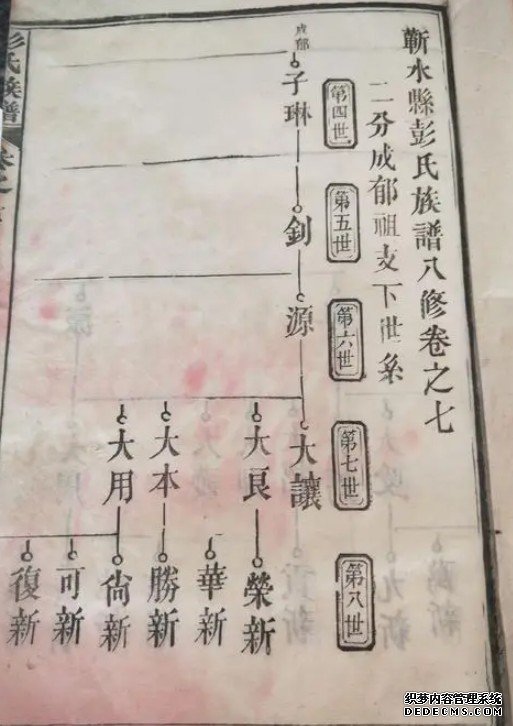 蘄水縣彭氏族譜八修卷之七
二分成郁祖支下世系
第四世
第五世
第六世
第七世
第八世
成郁
子琳
釗
源
大讓
大良
大本
大用
榮新
華新
勝新
尙新
可新
復新
彭氏族譜
卷之
织梦内容管理系统
DEDECMS.COM